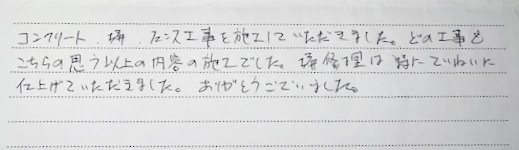 コンクリート、塀、フェンス工事を施工していただきました。どの工事も
こちらの思う以上の内容の施工でした。塀修理は特にていねいに
仕上げていただきました。ありがとうございました。